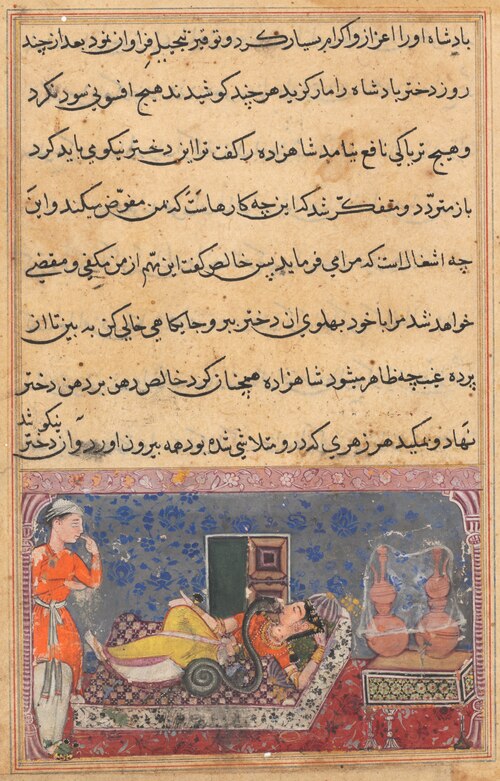 بادشاه اورا اعزاز و اکرام بسیار کرد و توقیر و تبجیل فراوان نمود بعد از چند
روز دختر بادشاه را مار گزید هرچند کوشیدند هیچ افسونی سود نکرد
و هیچ تریاکی نافع نیامد شاهزاده را گفت ترا این دختر نیکو می باید کرد
باز متردد و متفکر شد که این چه کارهاست که بمن مفوض میکند و این
چه اشغال است که مرا می فرماید پس خالص گفت این مهم از من مکفی و مقضی
خواهد شد مرا با خود بپهلوی آن دختر ببر و جایگاهی خالی کن به بین تا از
پرده غیب چه ظاهر میشود شاهزاده همچنان کرد خالص دهن بر دهن دختر
نهاد و بمکید هر زهری که درو متلاشی شده بود همه بیرون آورد و آن دختر
نیکو شد